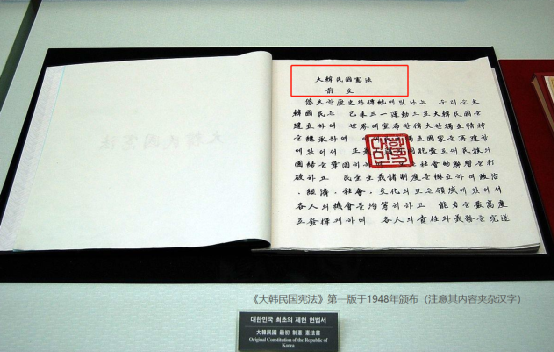 大韓民國憲法
前文
悠久한歷史와傳統에빛나는 우리들大
韓國民은 己未三一運動으로大韓民國을
建立하여 世界에宣布한偉大한獨立精神
을繼承하여 國家를再建함
에있어서 正義 愛로써民族의
團結을鞏固히하 社會的弊習을打
破하고 民主主義諸制度를樹立하여政治
,經濟,社會,文化의모든領域에있어서
各人의機會를均等히하고 能力을最高度
로發揮케하며 各人의責任과義務를完遂
《大韩民国宪法》第一版于1948年颁布（注意其内容夹杂汉字）
대한민국 최초의 제헌 헌법서
大韓民國 最初 制憲 憲法書
Original Constitution of the Republic of
Korea